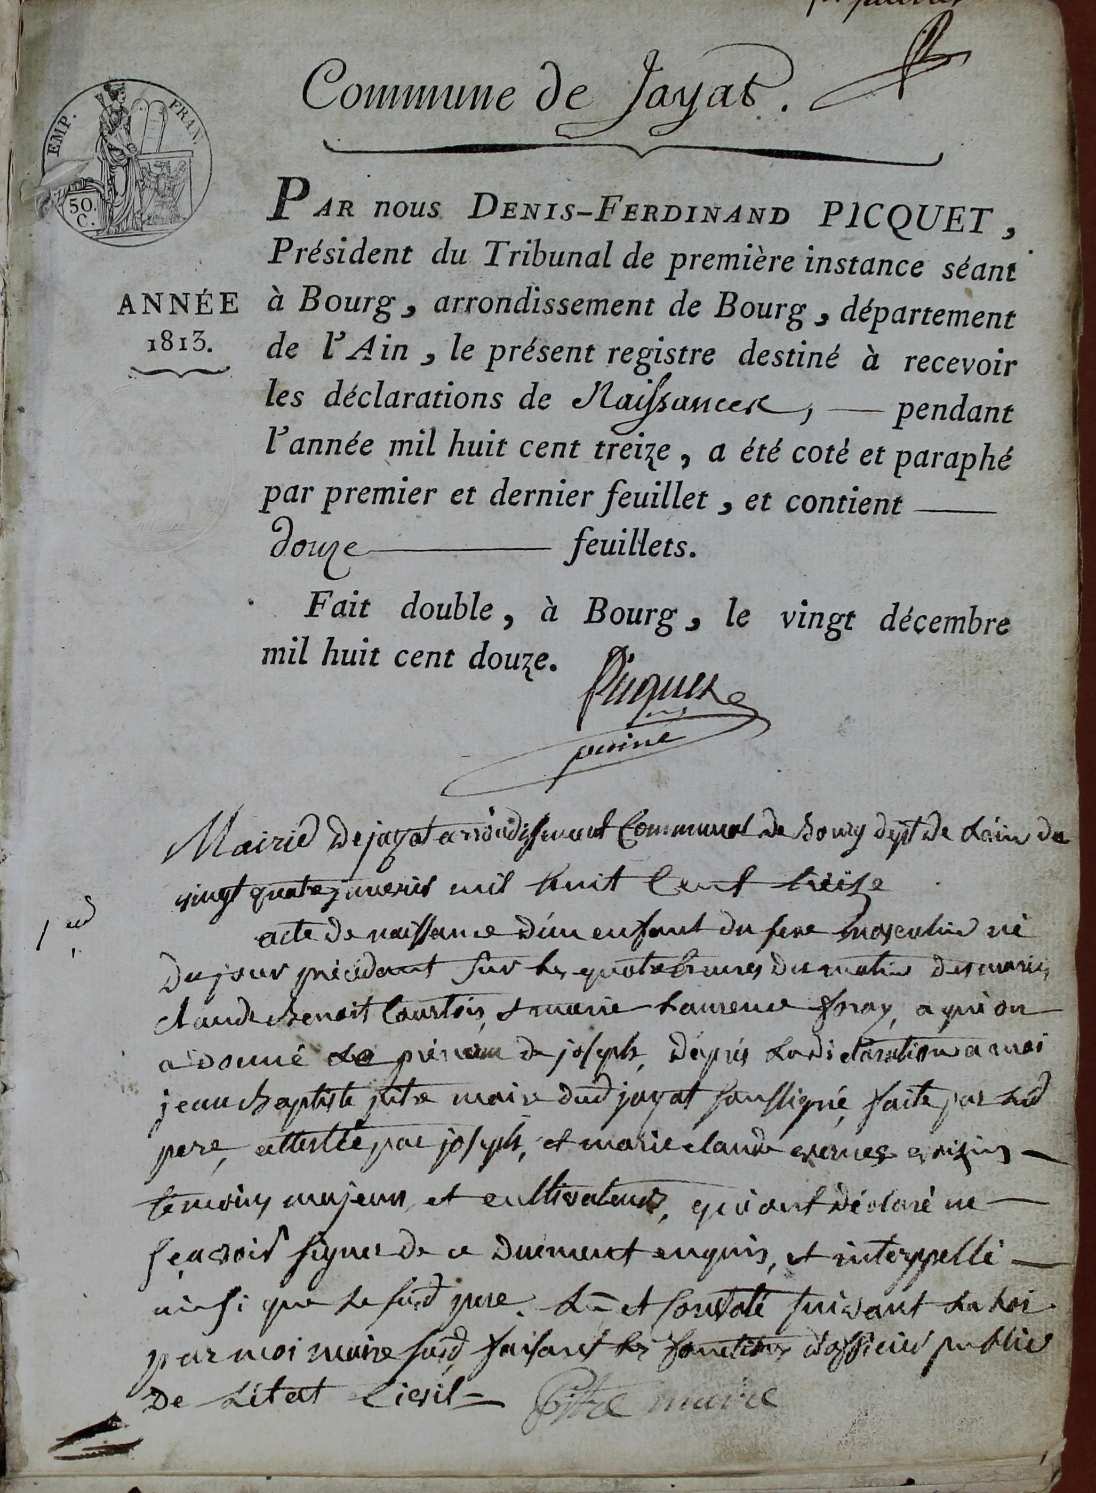 Commune de Jayat.
EMP. FRAN.
50.
C.
PAR nous DENIS-FERDINAND PICQUET,
Président du Tribunal de première instance séant
ANNÉE
1813.
à Bourg, arrondissement de Bourg, département
de l'Ain, le présent registre destiné à recevoir
les déclarations de Naissances, — pendant
l'année mil huit cent treize, a été coté et paraphé
par premier et dernier feuillet, et contient —
douze — feuillets.
Fait double, à Bourg, le vingt décembre
mil huit cent douze.
Picquet
Mairie de jayat arrondissement Communal de Bourg dept de Lain du
vingt quatre janvier mil huit Cent treize
acte de naissance d'un enfant du sexe masculin né
du jour précédent sur les quatre heures du matin des mariés
claude Benoit Courtois, et marie Laurence foray, a qui on
a donné le prénom de joseph, déprés la déclaration a moi
jean Baptiste pitre maire dud jayat soussigné, faite par led
pere, attestée par joseph, et marie claude voisins —
temoins majeurs, et cultivateurs, qui ont déclaré ne —
sçavoir signer de ce duement enquis, et interppellé —
ainsi que le susd pere. Lu et Constaté suivant la loi
par moi maire susd faisant les fonctions d'officier public
De Létat Civil —
Pitre maire